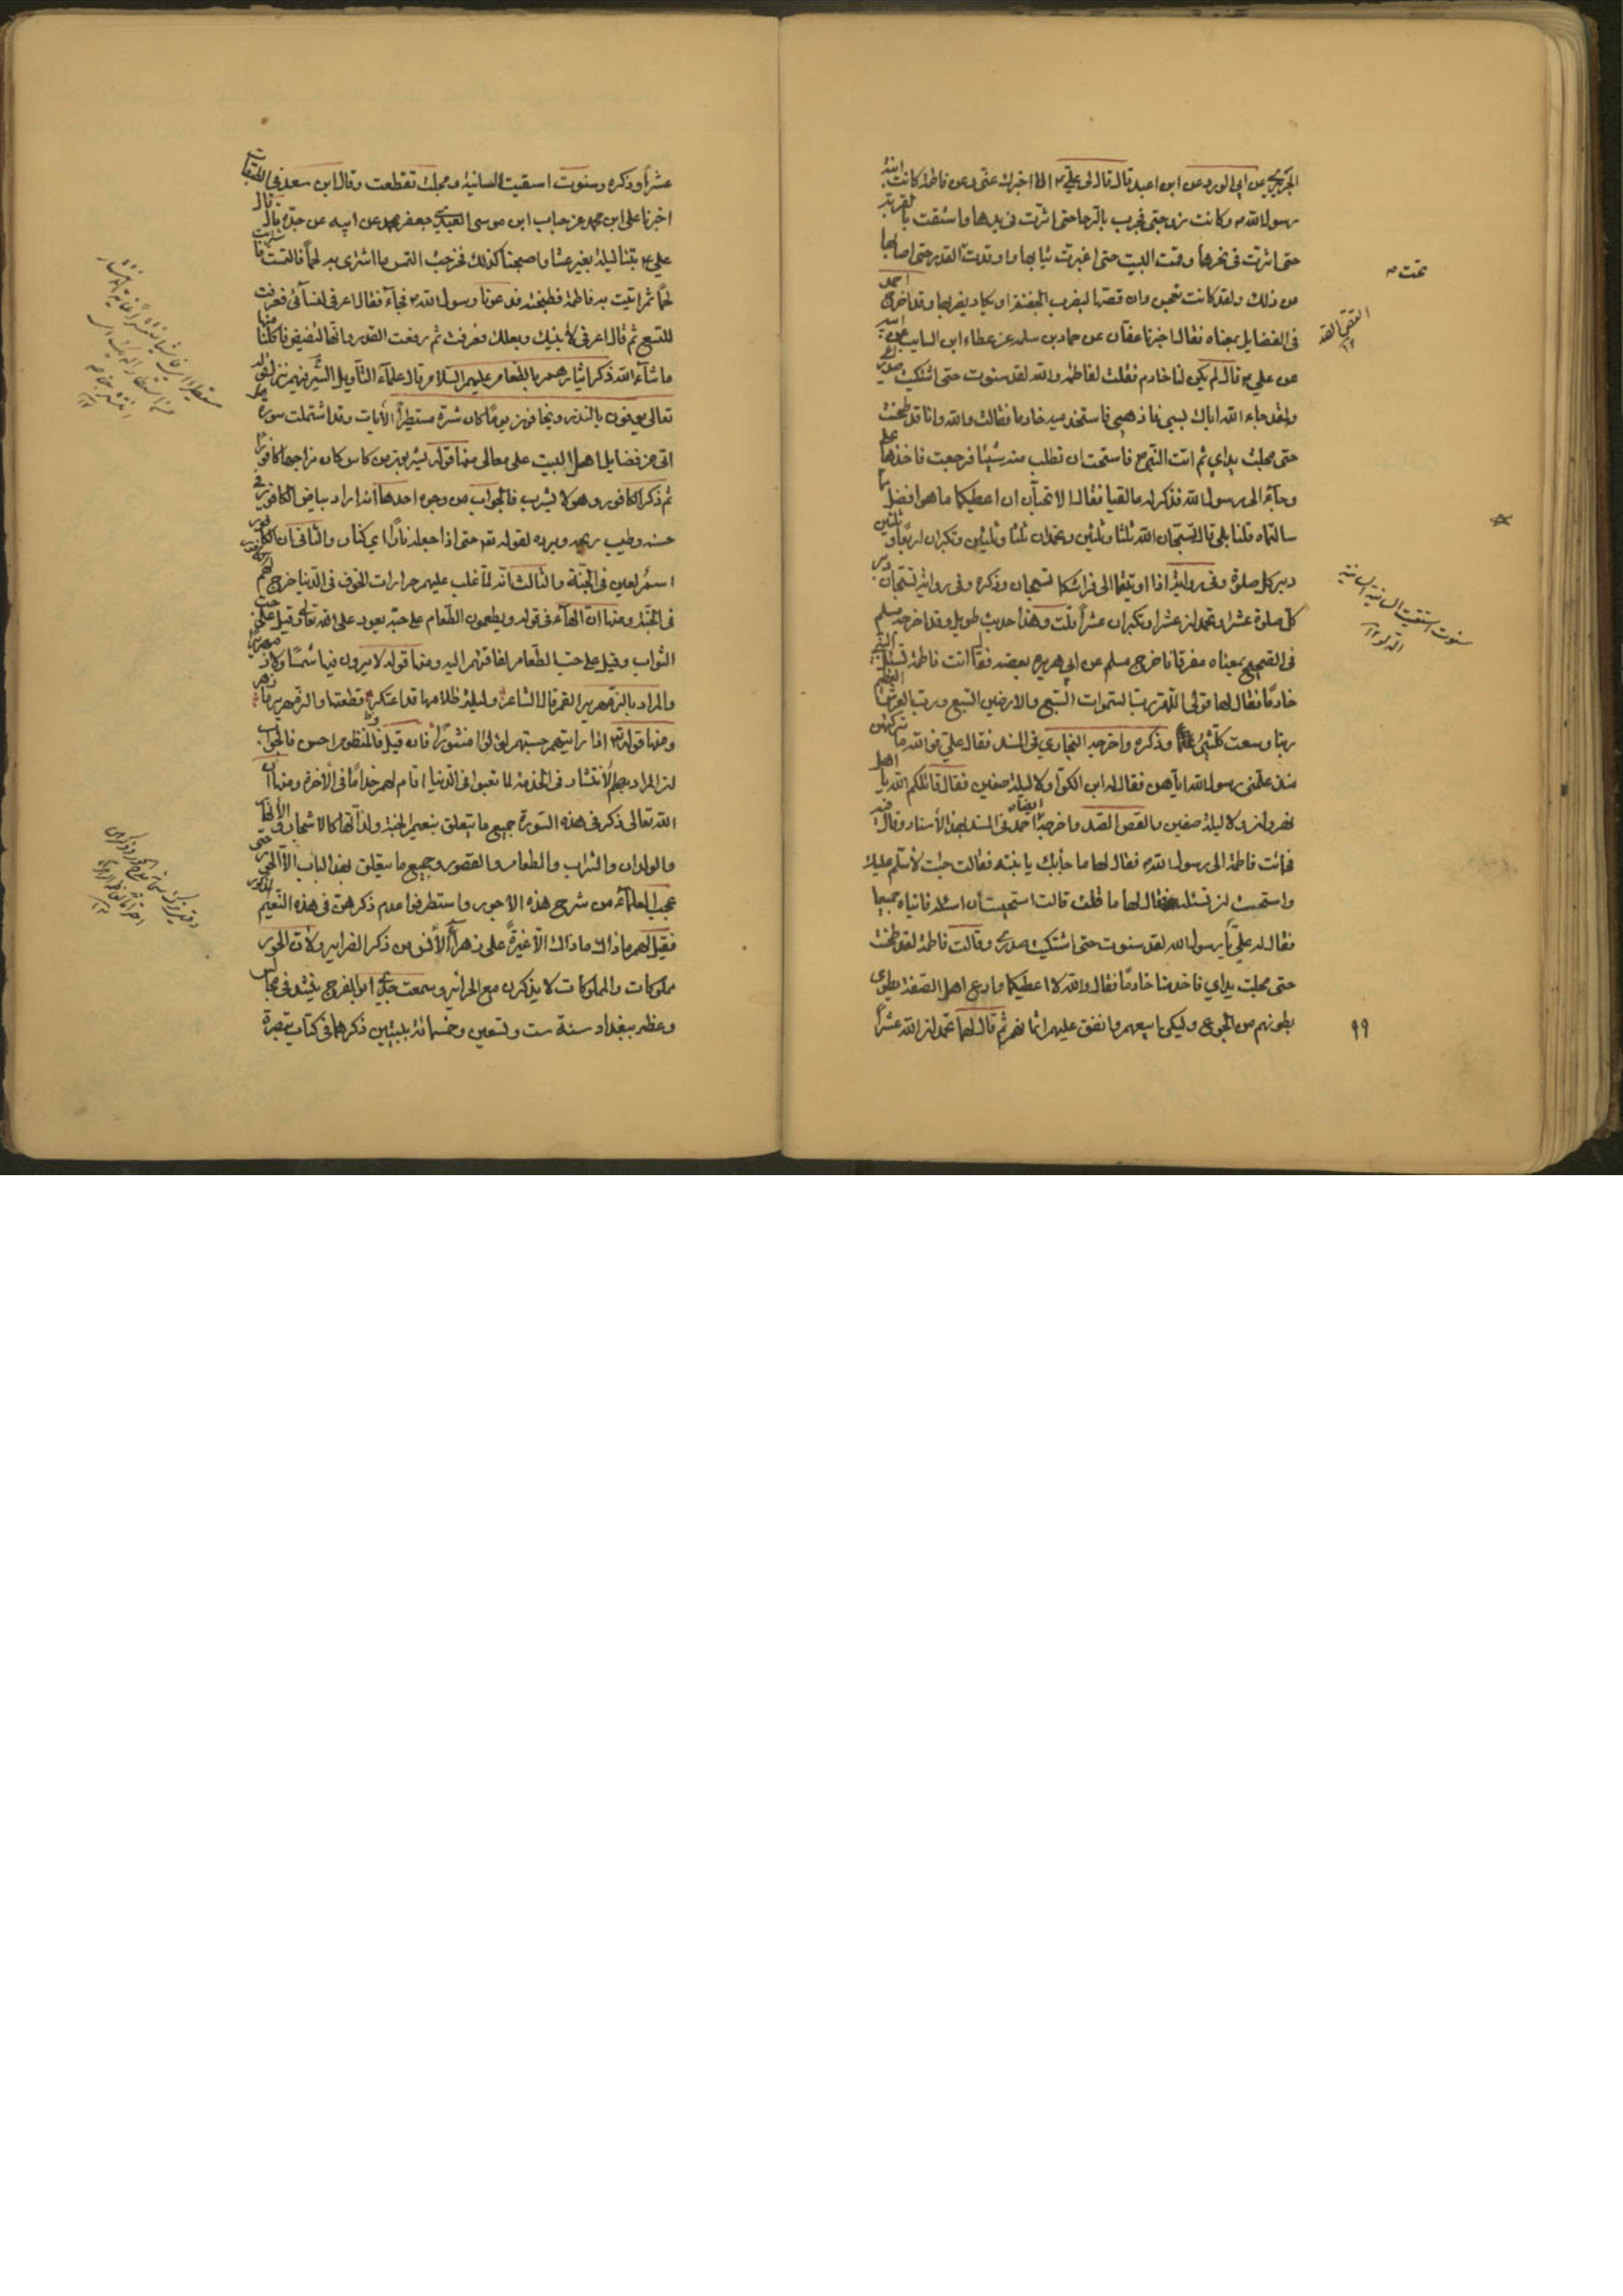 الجريري عن ابي الورد عن ابن اعبد قال قال لي علي الا اخبرك عني وعن فاطمة كانت ابنة
رسول الله وكانت زوجتي فجرت بالرحا حتى اثرت في يدها واستقت بالقربة
حتى اثرت في نحرها وقمت البيت حتى اغبرت ثيابها واوقدت القدر حتى اصابها
من ذلك ولقد كانت تعجن وان قصتها ليضرب الجفنة او يكاد يضربها وقد اخرج احمد
في الفضايل بمعناه فقال اخبرنا عفان عن حماد بن سلمة عن عطاء ابن السايب عن ابيه
عن علي قال لم يكن لنا خادم فقلت لفاطمة والله لقد سنوت حتى اشتكيت صدري
ولقد جاء الله اباك بسبي فاذهبي فاستخدميه خادما فقالت والله وانا قد طحنت
حتى مجلت يداي ثم اتت النبي فاستحت ان تطلب منه شيئا فرجعت فاخذها علي
وجاء الى رسول الله فذكر له ما لقيا فقال الا تحبان ان اعطيكما ما هو افضل مما
سالتماه قلنا بلى قال تسبحان الله ثلثا وثلثين وتحمدان ثلثا وثلثين وتكبران اربعا وثلثين
دبر كل صلوة وفي رواية اذا اويتما الى فراشكما تسبحان وذكره وفي رواية تسبحان دبر
كل صلوة عشرا وتحمدان عشرا وتكبران عشرا قلت وهذا حديث طويل وقد اخرجه مسلم
في الصحيح بمعناه مفرقا فاخرج مسلم عن ابي هريرة بعضه فقال اتت فاطمة تسئل النبي
خادما فقال لها قولي اللهم رب السموات السبع والارضين السبع ورب العرش العظيم
ربنا ورب كل شئ وذكره واخرجه البخاري في المسند فقال علي فوالله ما تركتهن
منذ علمني رسول الله اياهن فقال له ابن الكوا ولا ليلة صفين فقال قاتلكم الله يا اهل
نعم ولا ليلة صفين والقص القد واخرجه احمد في المسند ايضا بهذا الاسناد وقال فيه
فجائت فاطمة الى رسول الله فقال لها ما جابك يا بنية فقالت جئت لاسلم عليك
واستحيت ان تسئله فقال لها ما فعلت قالت استحييت ان اسئله فاتياه جميعا
فقال له علي يا رسول الله لقد سنوت حتى اشتكيت صدري وقالت فاطمة لقد طحنت
حتى مجلت يداي فاخدمنا خادما فقال والله لا اعطيكما وادع اهل الصفة يطوى
بطونهم من الجوع ولكني ابيعهم وانفق عليهم اثمانهم ثم قال لهما تحمدان الله عشرا
تمت
القص القد
سنوت استقيت السانية
٩٩
عشرا وذكره وسنوت استقيت السانية ومجلت تقطعت وقال ابن سعد في الطبقات
اخبرنا علي ابن محمد عن حباب ابن موسى العبدي جعفر محمد عن ابيه عن جده قال قال
علي بتنا ليلة بغير عشا واصبحنا كذلك فخرجت التمس ما اشترى به لحما فالتمست فاشتريت
لحما ثم اتيت به فاطمة فطبخته فدعونا رسول الله فجاء فقال اغرفي لنسائي فغرفت
للتسع ثم قال اغرفي لابنيك وبعلك فغرفت ثم رفعت القدر وانها لتفيض فاكلنا منها
ما شاء الله ذكر ايثارهم بالطعام عليهم السلام قال علماء التأويل فيهم نزل قوله
تعالى يوفون بالنذر ويخافون يوما كان شره مستطيرا الايات وقد اشتملت سورة هل
اتى من فضايل اهل البيت على معاني منها قوله يشربون من كاس كان مزاجها كافورا
ثم ذكر الكافور وهو لا يشرب فالجواب من وجوه احدها انه اراد بياض الكافور في
حسنه وطيب ريحه وبرده لقوله حتى اذا جعله نارا اي كنار والثاني ان الكافور
اسم لعين في الجنة والثالث انه لما غلب عليهم حرارات الخوف في الدنيا خرج لهم الكافور
في الجنة ومنها ان الهاء في قوله ويطعمون الطعام على حبه يعود على الله تعالى وقيل على حب
الثواب وقيل على حب الطعام لفاقتهم اليه ومنها قوله لا يرون فيها شمسا ولا زمهريرا
والمراد بالزمهرير القمر قال الشاعر وليلة ظلامها قد اعتكر قطعتها والزمهرير ما زهر
ومنها قوله اذا رايتهم حسبتهم لؤلؤا منثورا فان قيل فالمنظوم احسن فالجواب
ان المراد بهم الانتشار في الخدمة لما تعبوا في الدنيا اقام لهم خداما في الاخرة ومنها ان
الله تعالى ذكر في هذه السورة جميع ما يتعلق بنعيم الجنة ولذاتها كالاشجار والانهار
والولدان والشراب والطعام والقصور وجميع ما يتعلق بهذا الباب الا الحور
عجب العلماء من شرح هذه الامور واستطرفوا عدم ذكرهن في هذه النعيم
فقيل لهم ماذاك ماذاك الا غيرة على زهراء الانس من ذكر الضراير ولان الحور
مملوكات والمملوكات لا يذكرن مع الحرائر وسمعت جدي ابا الفرج ينشد في مجالس
وعظه ببغداد سنة ست وتسعين وخمسمائة بيتين ذكرهما في كتاب تبصرة